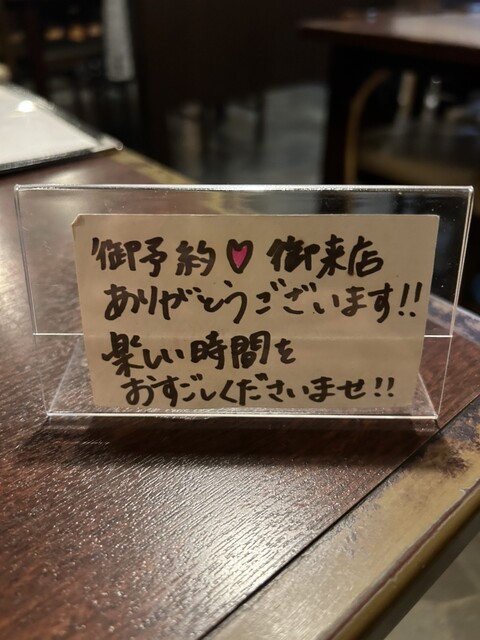 御予約♥御来店
ありがとうございます!!
楽しい時間を
おすごしくださいませ!!